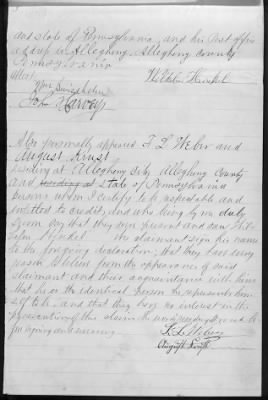 and state of Pennsylvania, and his Post office
address is Allegheny, Allegheny County
Pennsylvania
Attest
John Harvey
Also personally appeared F L Weber and
August Krust
residing at Allegheny City Allegheny County
and residing at State of Pennsylvania
persons whom I certify to be respectable and
entitled to credit, and who being by me duly
sworn say that they were present and saw
the claimant sign his name
to the foregoing declaration; that they have every
reason to believe from the appearance of said
claimant and their acquaintance with him
that he is the identical person he represents him
self to be, and that they have no interest in the
prosecution of this claim
signing and swearing
F. L. Weber
August Krust